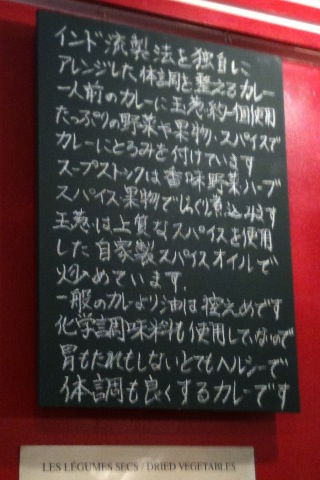 インド流製法を独自に
アレンジした体調を整えるカレー
一人前のカレーに玉葱約一個使用
たっぷりの野菜や果物、スパイスで
カレーにとろみを付けています
スープストックは香味野菜ハーブ
スパイス果物でじっくり煮込みます
玉葱は上質なスパイスを使用
した自家製スパイスオイルで
炒めています.
一般のカレーより油は控えめです
化学調味料も使用していないので
胃もたれもしないとてもヘルシーで
体調も良くするカレーです
LES LÉGUMES SECS / DRIED VEGETABLES